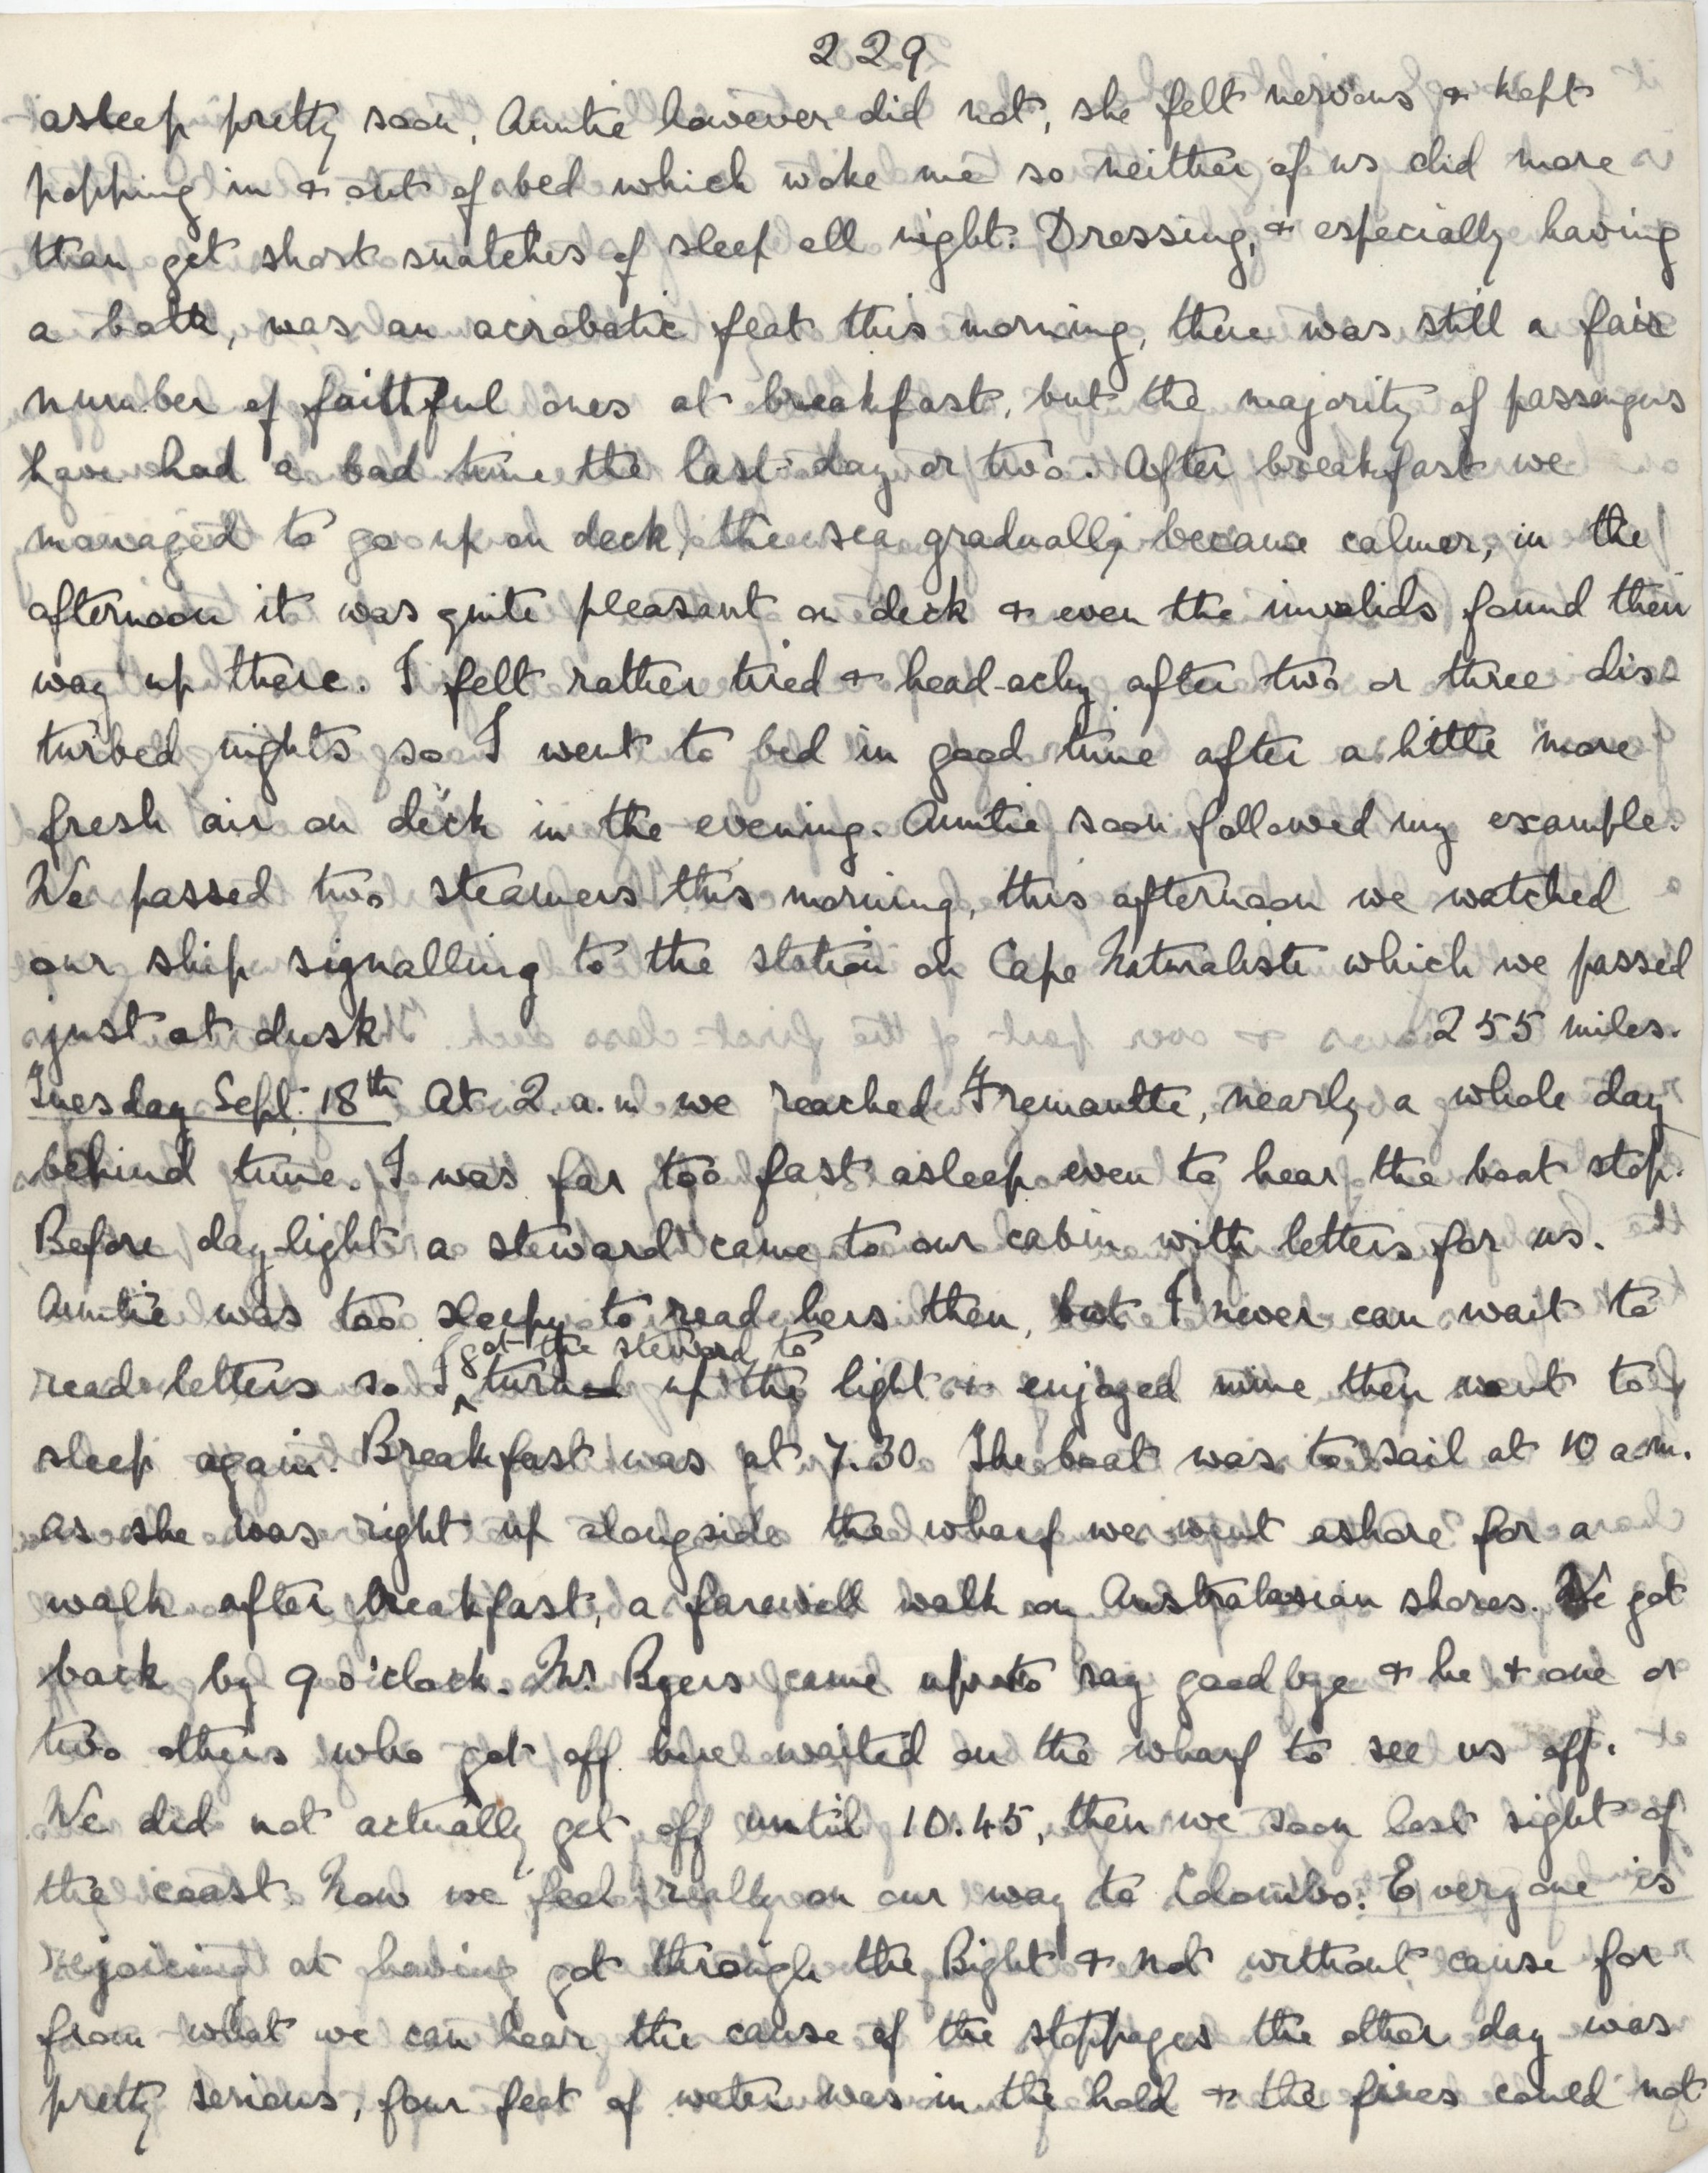 229
asleep pretty soon, Auntie however did not, she felt nervous & kept
popping in & out of bed which woke me so neither of us did more
than get short snatches of sleep all night. Dressing, & especially having
a bath, was an acrobatic feat this morning, there was still a fair
number of faithful ones at breakfast, but the majority of passengers
have had a bad time the last day or two. After breakfast we
managed to go up on deck, the sea gradually became calmer, in the
afternoon it was quite pleasant on deck & even the invalids found their
way up there. I felt rather tired & head-achy after two or three dis-
turbed nights so I went to bed in good time after a little more
fresh air on deck in the evening. Auntie soon followed my example.
We passed two steamers this morning, this afternoon we watched
our ship signalling to the station on Cape Naturaliste which we passed
just at dusk 255 miles.
Tuesday Sept. 18th At 2 a.m we reached Fremantle, nearly a whole day
behind time. I was far too fast asleep even to hear the boat stop.
Before daylight a steward came to our cabin with letters for us.
Auntie was too sleepy to read hers then, but I never can wait to
got the steward to
read letters so I ^ turned up the light & enjoyed mine then went to
sleep again. Breakfast was at 7.30. The boat was to sail at 10 a.m.
as she was right up alongside the wharf we went ashore for a
walk after breakfast, a farewell walk on Australasian shores. We got
back by 9 o'clock. Mr. Byers came up to say goodbye & he & one or
two others who got off here waited on the wharf to see us off.
We did not actually get off until 10.45, then we soon lost sight of
the coast. Now we feel really on our way to Colombo. Everyone is
rejoicing at having got through the Bight & not without cause for
from what we can hear the cause of the stoppages the other day was
pretty serious, four feet of water was in the hold & the fires could not